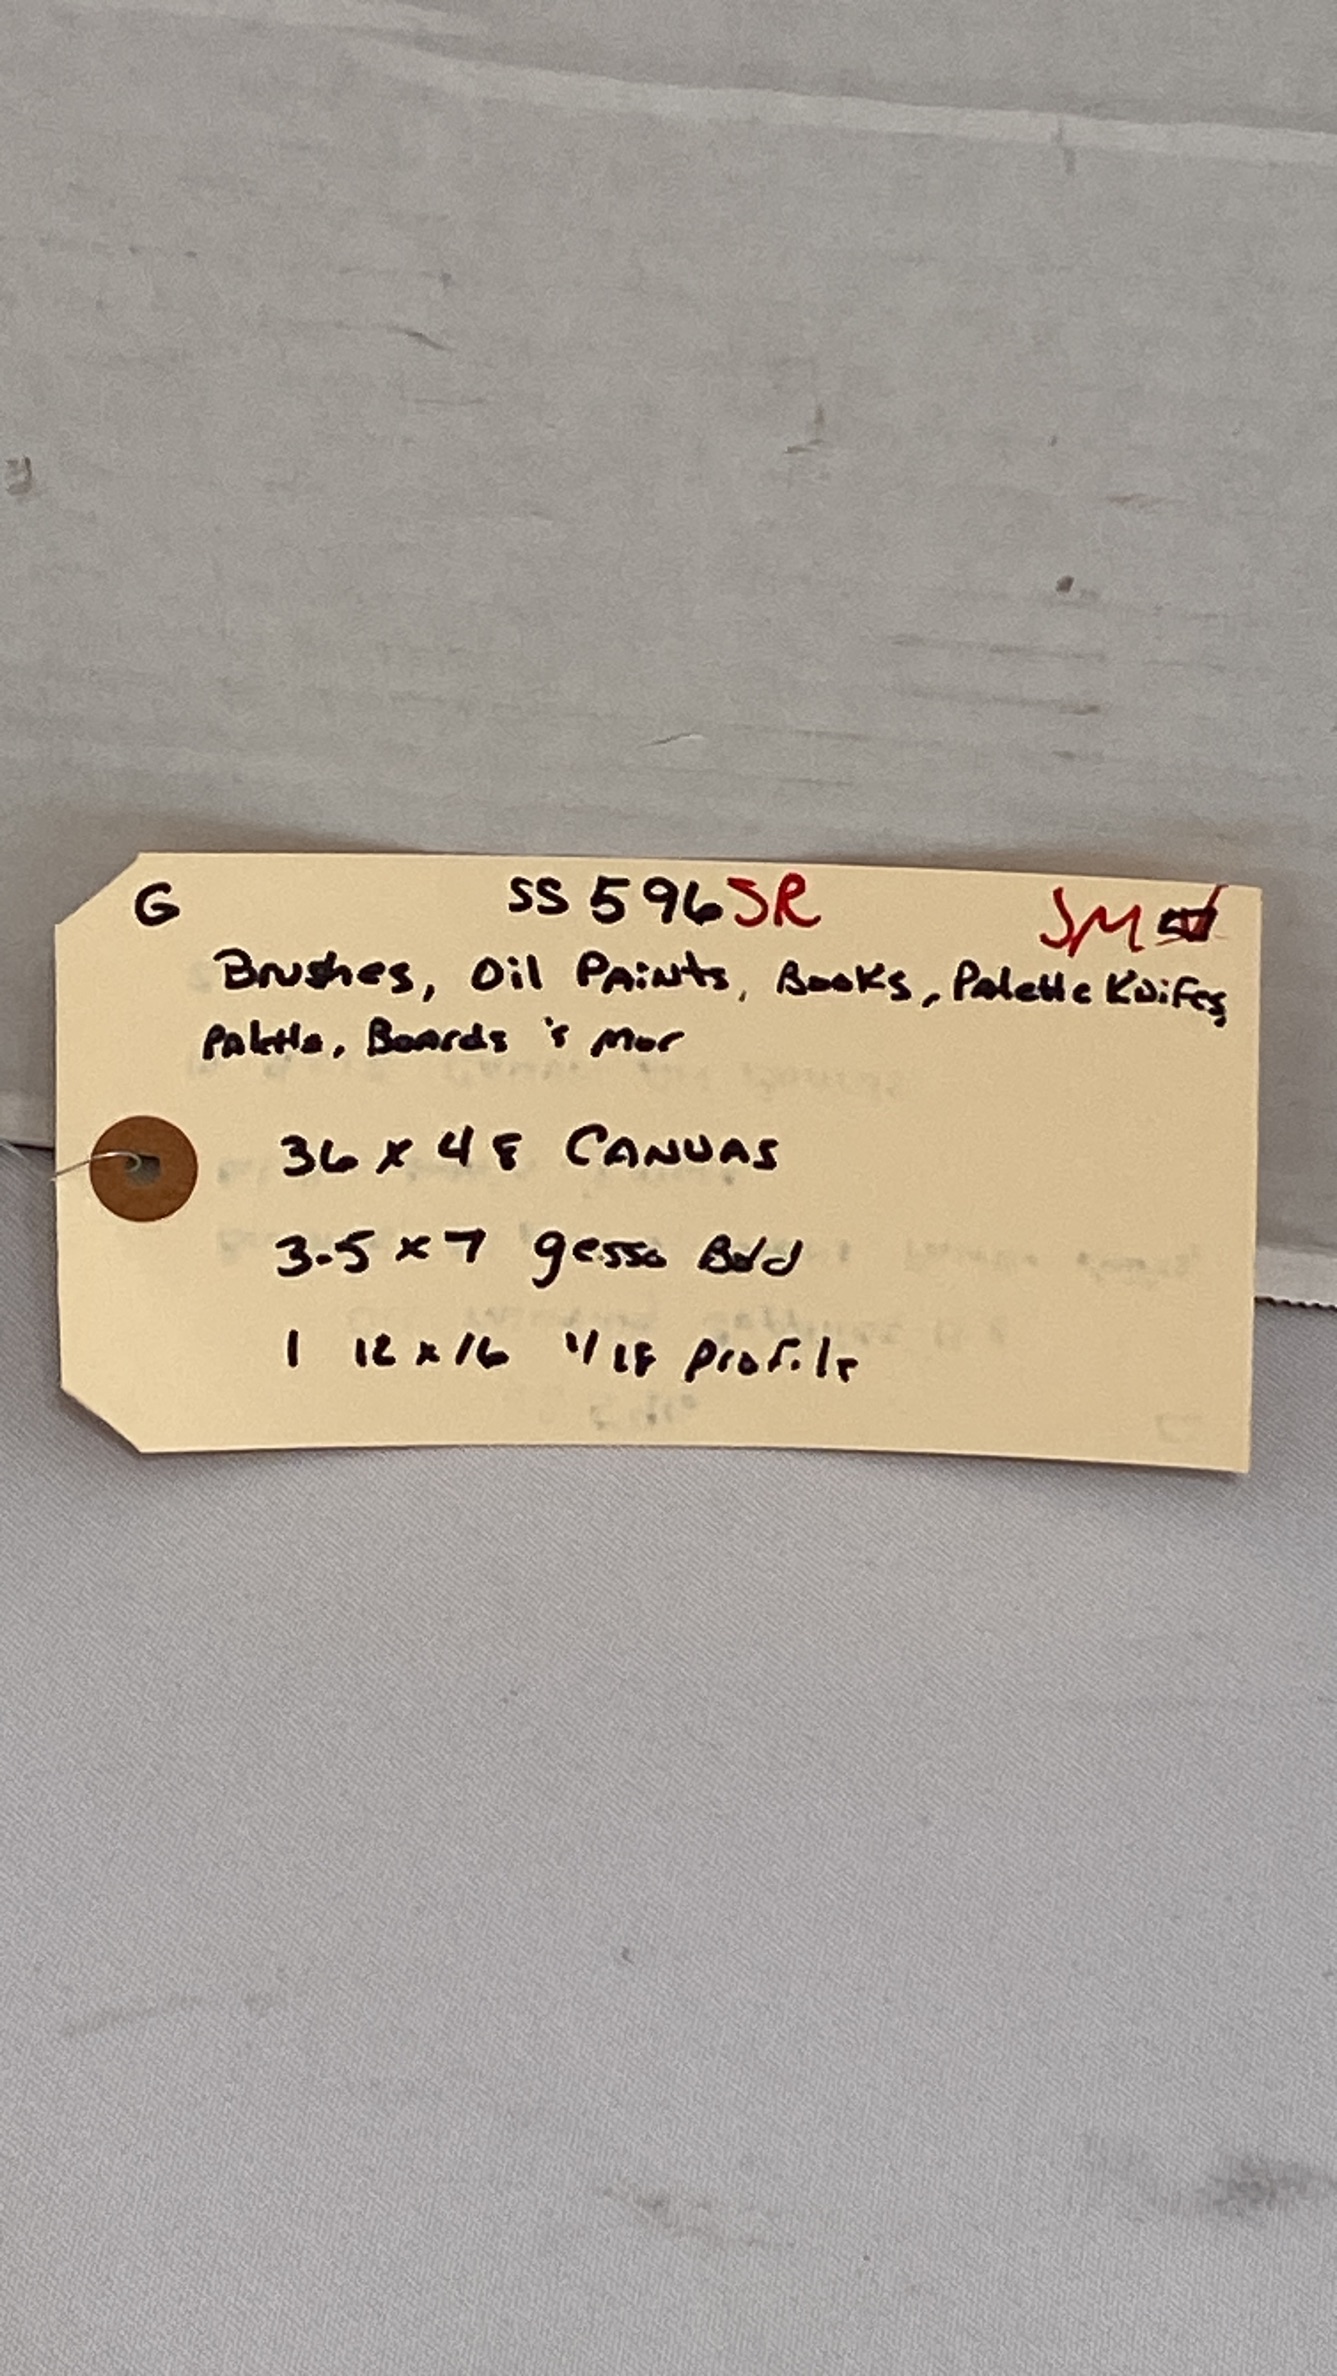 G SS 596 JR JM
Brushes, Oil Paints, Books, Palette Knifes,
Palette, Boards & Mor
36 x 48 CANVAS
3.5 x 7 gesso Bod
1 12 x 16 1/18 Profile